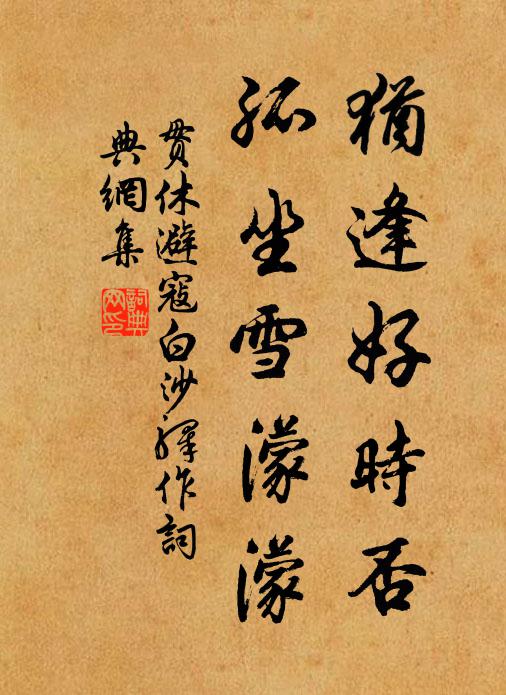 猶逢好時否
孤坐雪濛濛
貫休避寇白沙驛作詞
典網集
詞典
网印